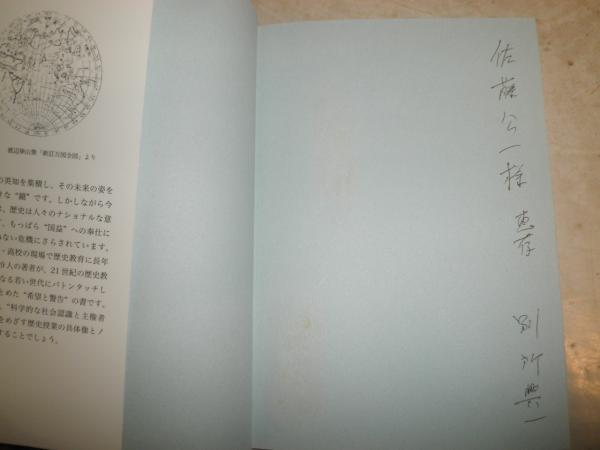 渡辺崋山集「新訂万国全図」より
の英知を集積し、その未来の姿を
きな“鏡”です。しかしながら今
は、歴史は人々のナショナルな意
て、もっぱら“国益”への奉仕に
ない危機にさらされています。
・高校の現場で歴史教育に長年
9人の著者が、21世紀の歴史教
なる若い世代にバトンタッチし
とめた“希望と警告”の書です。
、“科学的な社会認識と主権者
をめざす歴史授業の具体像とノ
することでしょう。
佐藤公一様 恵存
別所興一